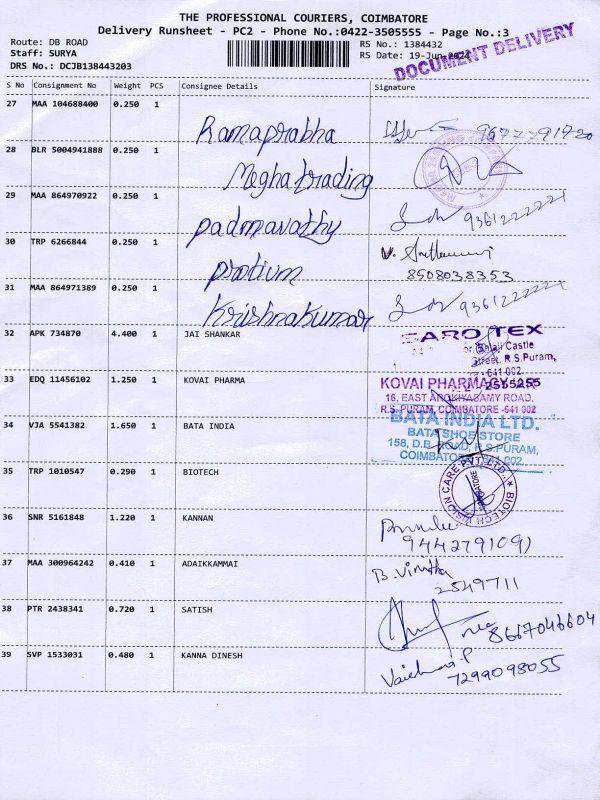 THE PROFESSIONAL COURIERS, COIMBATORE
Delivery Runsheet - PC2 - Phone No.:0422-3505555 - Page No.:3
Route: DB ROAD
RS No.: 1384432
Staff: SURYA
RS Date: 19-Jun-2024
DRS No.: DCJB138443203
DOCUMENT DELIVERY
S No Consignment No Weight PCS Consignee Details Signature
27 MAA 104688400 0.250 1 Ramaprabha
28 BLR 5004941888 0.250 1 Megha trading
29 MAA 864970922 0.250 1 padmavathy 9361222221
30 TRP 6266844 0.250 1 protium V.
8508038353
31 MAA 864971389 0.250 1 Krishnakumar 9361222221
32 APK 734870 4.400 1 JAI SHANKAR SARO TEX
Balaji Castle
Street, R.S.Puram,
641 002
33 EDQ 11456102 1.250 1 KOVAI PHARMA KOVAI PHARMACY 2555255
16, EAST AROKIYASAMY ROAD,
R.S. PURAM, COIMBATORE -641 002
34 VJA 5541382 1.650 1 BATA INDIA BATA INDIA LTD.
BATA SHOE STORE
158, D.B. ROAD, R.S.PURAM,
COIMBATORE 641 002
35 TRP 1010547 0.290 1 BIOTECH BIOTECH VISION CARE PVT. LTD.
36 SNR 5161848 1.220 1 KANNAN
9442791091
37 MAA 300964242 0.410 1 ADAIKKAMMAI B. Vinitha
2549711
38 PTR 2438341 0.720 1 SATISH 8667046604
39 SVP 1533031 0.480 1 KANNA DINESH
7299098055